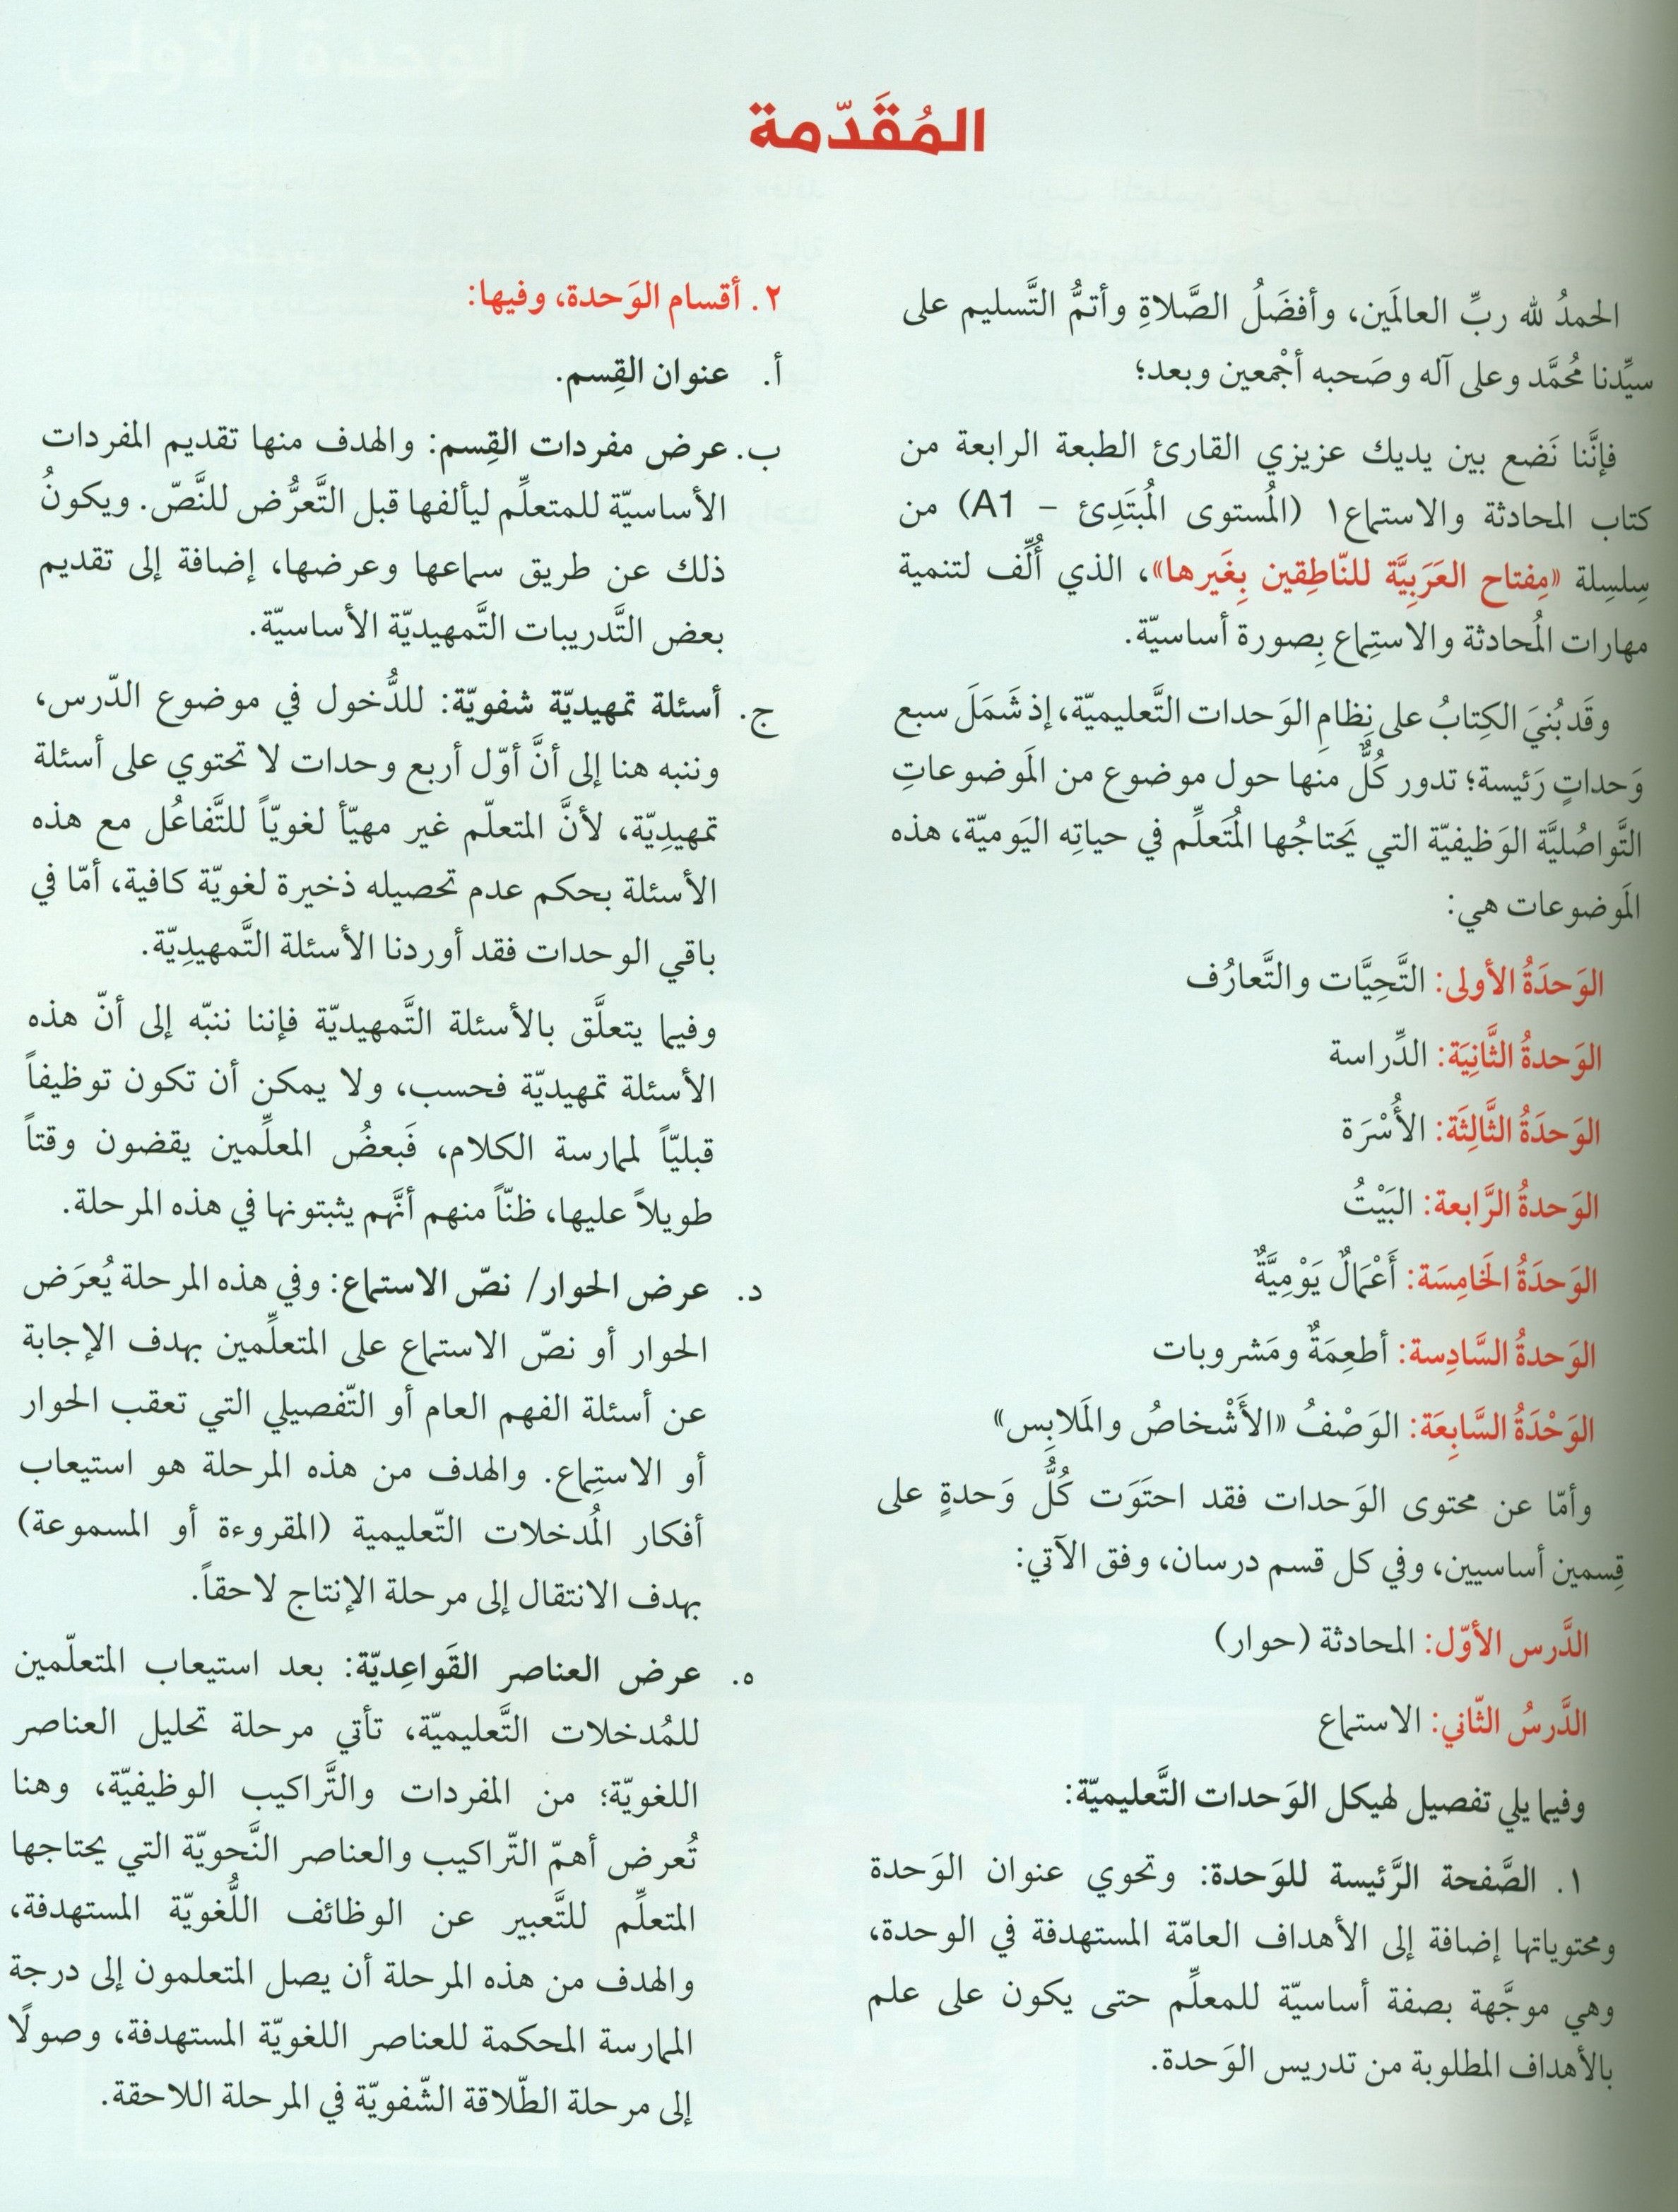 المُقَدّمة
الحمدُ لله ربِّ العالَمَين، وأفضَلُ الصَّلاةِ وأتمُّ التَّسليم على
سيِّدنا مُحمَّد وعلى آله وصَحبه أجْمعين وبعد؛
فإنَّنا نَضع بين يديك عزيزي القارئ الطبعة الرابعة من
كتاب المحادثة والاستماع١ (المُستوى المُبتَدِئ – A1) من
سِلسِلة «مِفتاح العَرَبِيَّة للنّاطِقين بِغَيرها»، الذي أُلِّف لتنمية
مهارات المُحادثة والاستِماع بِصورة أساسيّة.
وقَد بُنيَ الكِتابُ على نِظامِ الوَحدات التَّعليميّة، إذ شَمَلَ سبع
وَحداتٍ رَئيسة؛ تدور كُلٌّ منها حول موضوع من المَوضوعاتِ
التَّواصُليَّة الوَظيفيّة التي يَحتاجُها المُتَعلِّم في حياتِه اليَوميّة، هذه
المَوضوعات هي:
الوَحدَةُ الأولى: التَّحِيَّات والتَّعارُف
الوَحدةُ الثَّانِيَة: الدِّراسة
الوَحدَةُ الثَّالِثَة: الأُسْرَة
الوَحدةُ الرَّابعة: البَيْتُ
الوَحدَةُ الخَامِسَة: أَعْمَالٌ يَوْمِيَّةٌ
الوَحدةُ السَّادِسة: أطعِمَةٌ ومَشروبات
الوَحْدَةُ السَّابِعَة: الوَصْفُ «الأَشْخاصُ والمَلابِس»
وأمّا عن محتوى الوَحدات فقد احتَوَت كُلُّ وَحدةٍ على
قِسمين أساسيين، وفي كل قسم درسان، وفق الآتي:
الدَّرس الأوّل: المحادثة (حوار)
الدَّرسُ الثّاني: الاستماع
وفيما يلي تفصيل لهيكل الوَحدات التَّعليميّة:
١. الصَّفحة الرَّئيسة للوَحدة: وتحوي عنوان الوَحدة
ومحتوياتها إضافة إلى الأهداف العامّة المستهدفة في الوحدة،
وهي موجَّهة بصفة أساسيّة للمعلِّم حتى يكون على علم
بالأهداف المطلوبة من تدريس الوَحدة.
٢. أقسام الوَحدة، وفيها:
أ. عنوان القِسم.
ب. عرض مفردات القِسم: والهدف منها تقديم المفردات
الأساسيّة للمتعلِّم ليألفها قبل التَّعرُّض للنَّصّ. ويكونُ
ذلك عن طريق سماعها وعرضها، إضافة إلى تقديم
بعض التَّدريبات التَّمهيديّة الأساسيّة.
ج. أسئلة تمهيديّة شفويّة: للدُّخول في موضوع الدّرس،
وننبه هنا إلى أنَّ أوّل أربع وحدات لا تحتوي على أسئلة
تمهيدِيّة، لأنَّ المتعلّم غير مهيّأ لغويّاً للتَّفاعُل مع هذه
الأسئلة بحكم عدم تحصيله ذخيرة لغويّة كافية، أمّا في
باقي الوحدات فقد أوردنا الأسئلة التَّمهيدِيّة.
وفيما يتعلَّق بالأسئلة التَّمهيديّة فإننا ننبّه إلى أنّ هذه
الأسئلة تمهيديّة فحسب، ولا يمكن أن تكون توظيفاً
قبليّاً لممارسة الكلام، فَبعضُ المعلِّمين يقضون وقتاً
طويلاً عليها، ظنّاً منهم أنَّهم يثبتونها في هذه المرحلة.
د. عرض الحوار/ نصّ الاستماع: وفي هذه المرحلة يُعرَض
الحوار أو نصّ الاستماع على المتعلِّمين بهدف الإجابة
عن أسئلة الفهم العام أو التّفصيلي التي تعقب الحوار
أو الاستِماع. والهدف من هذه المرحلة هو استيعاب
أفكار المُدخلات التّعليمية (المقروءة أو المسموعة)
بهدف الانتقال إلى مرحلة الإنتاج لاحقاً.
ه. عرض العناصر القَواعِديّة: بعد استيعاب المتعلّمين
للمُدخلات التَّعليميّة، تأتي مرحلة تحليل العناصر
اللغويّة؛ من المفردات والتَّراكيب الوظيفيّة، وهنا
تُعرض أهمّ التّراكيب والعناصر النَّحويّة التي يحتاجها
المتعلِّم للتَّعبير عن الوظائف اللُّغويّة المستهدفة،
والهدف من هذه المرحلة أن يصل المتعلمون إلى درجة
الممارسة المحكمة للعناصر اللغويّة المستهدفة، وصولًا
إلى مرحلة الطّلاقة الشّفويّة في المرحلة اللاحقة.